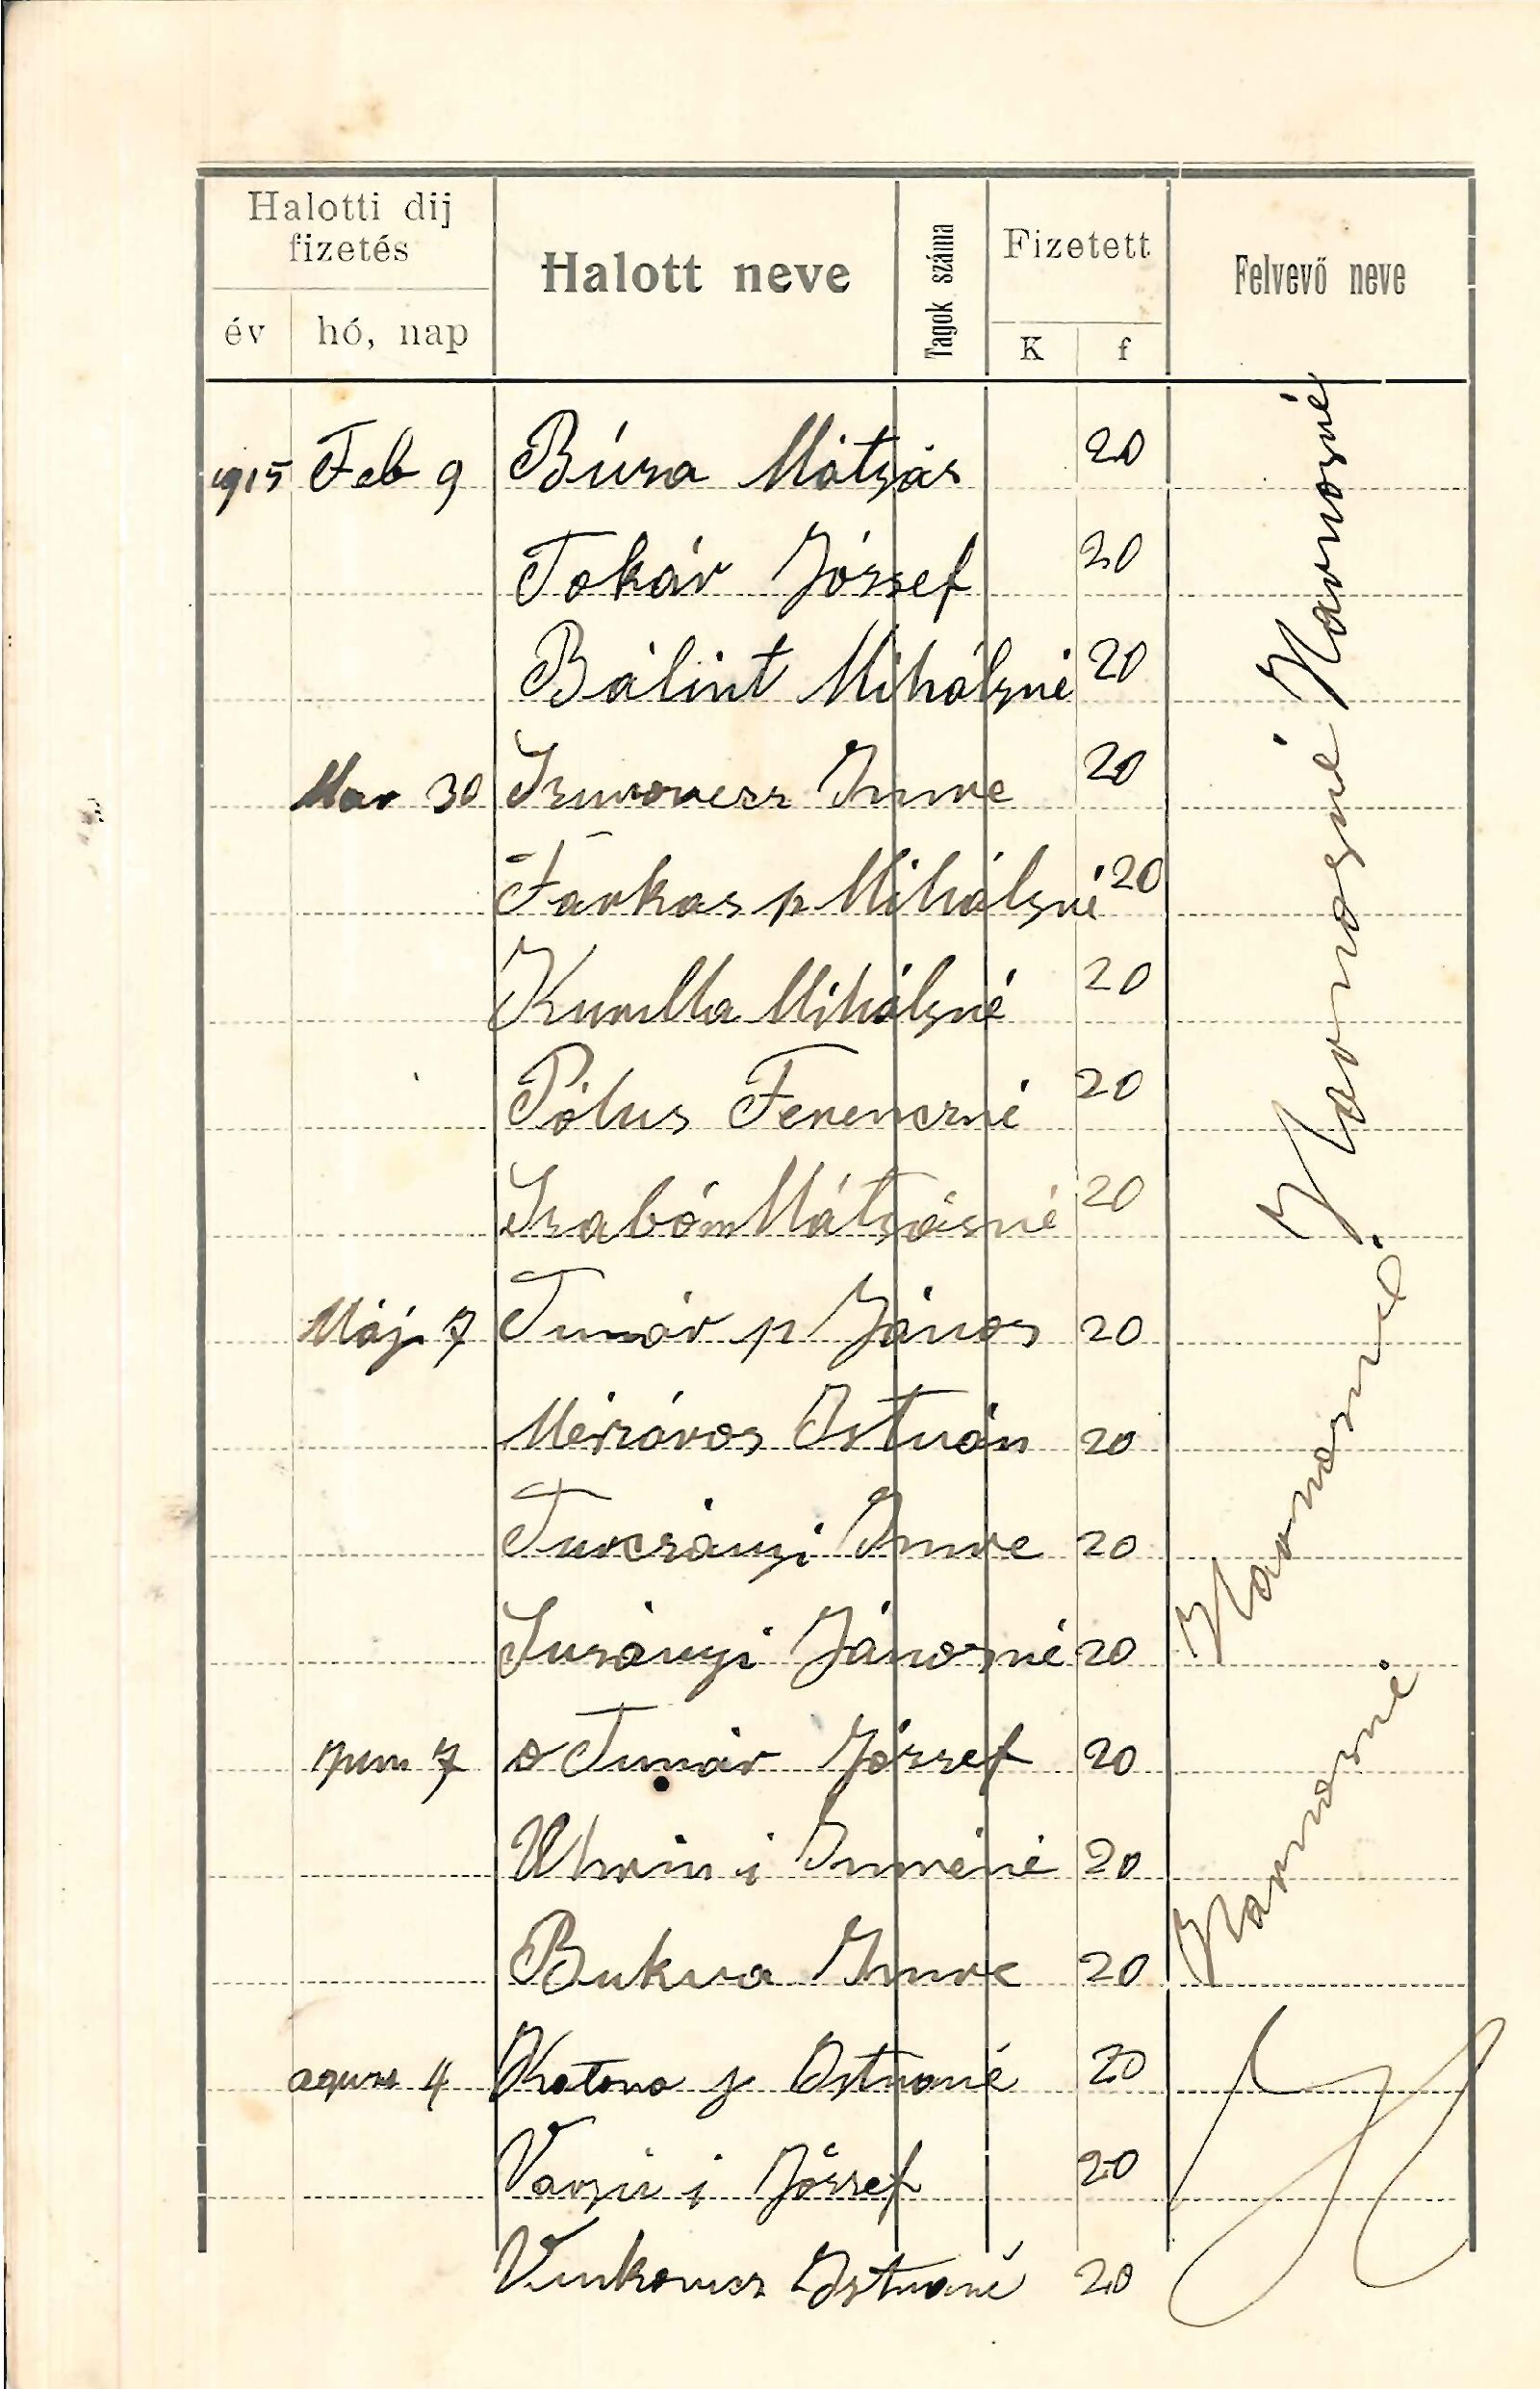 Halotti dij
fizetés
Halott neve
Tagok száma
Fizetett
Felvevő neve
év hó, nap
K f
1915 Feb 9 Búza Mátyás 20
Tokár József 20
Bálint Mihályné 20
Mar 30 Imre 20
Farkas p Mihályné 20
Kurilla Mihályné 20
Pólus Ferenczné 20
Szabó m Mátyásné 20
Máj 7 Timár p János 20
Mészáros István 20
Turcsányi Imre 20
Surányi Jánosné 20
Jun 7 Timár József 20
Uhrin i Imréné 20
Bukva Imre 20
4 Katona j Istvané 20
j József 20
Istvané 20